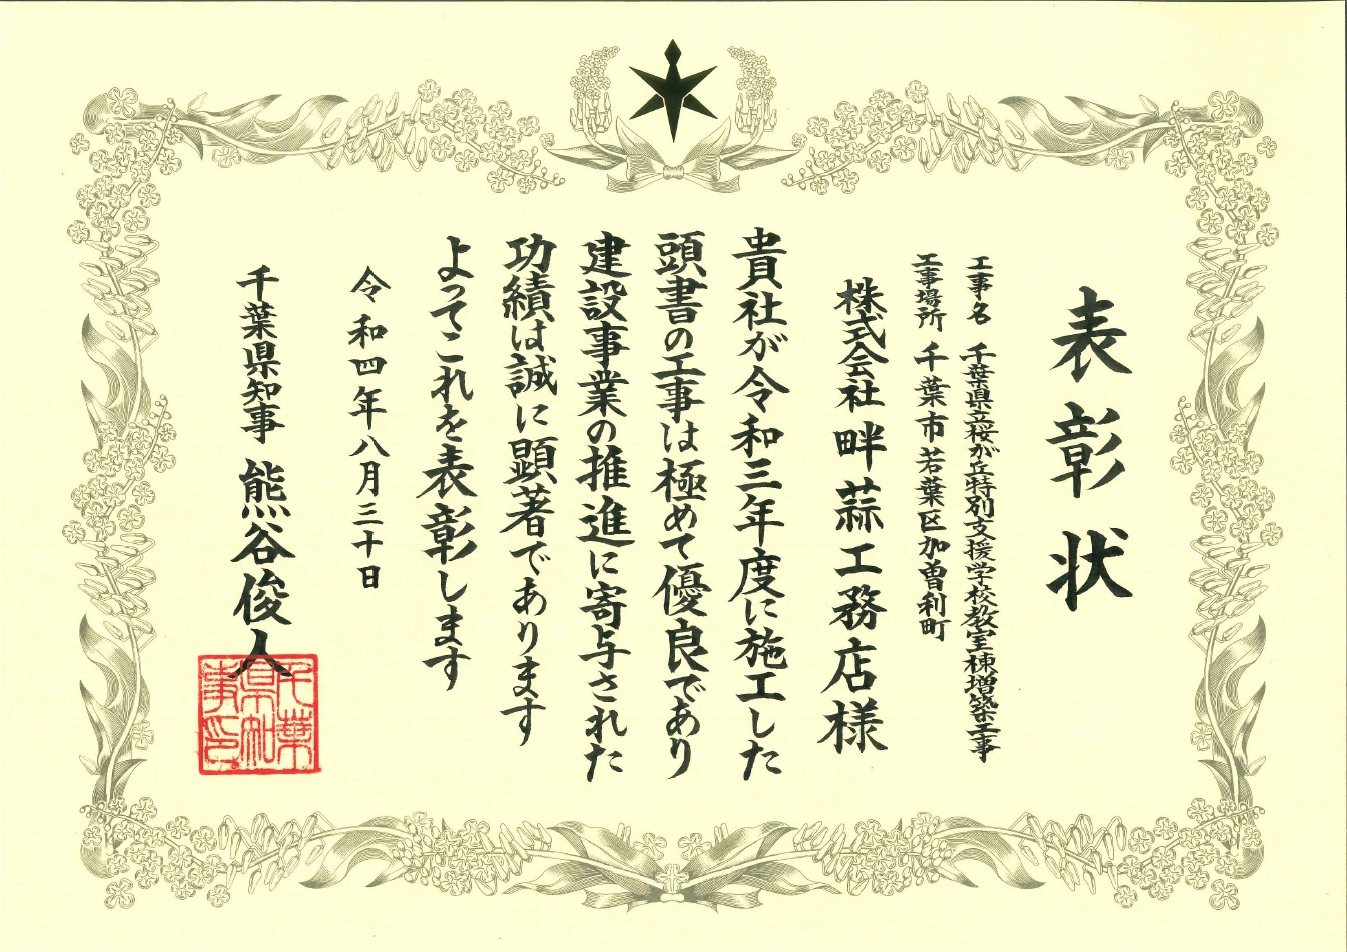 表彰状
工事名 千葉県立桜が丘特別支援学校教室棟増築工事
工事場所 千葉市若葉区加曽利町
株式会社畔蒜工務店様
貴社が令和三年度に施工した
頭書の工事は極めて優良であり
建設事業の推進に寄与された
功績は誠に顕著であります
よってこれを表彰します
令和四年八月三十日
千葉県知事 熊谷俊人
千葉県知事印